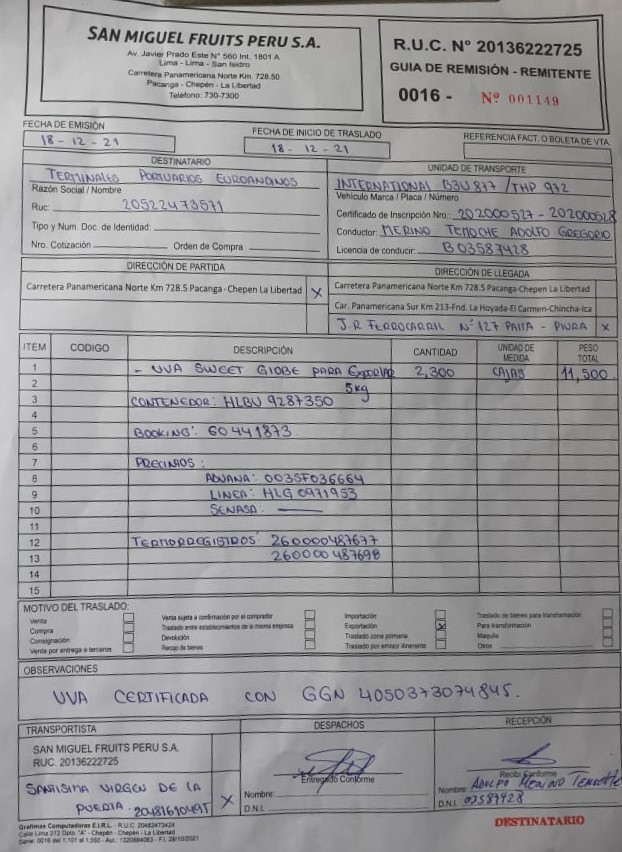 SAN MIGUEL FRUITS PERU S.A.
Av. Javier Prado Este N° 560 Int. 1801 A
Lima - Lima - San Isidro
Carretera Panamericana Norte Km. 728.50
Pacanga - Chepén - La Libertad
Teléfono: 730-7300
R.U.C. N° 20136222725
GUIA DE REMISIÓN - REMITENTE
0016 - Nº 001149
FECHA DE EMISIÓN
18 - 12 - 21
FECHA DE INICIO DE TRASLADO
18 - 12 - 21
REFERENCIA FACT. O BOLETA DE VTA.
DESTINATARIO
TERMINALES PORTUARIOS EUROANDINOS
Razón Social / Nombre
Ruc: 20522473571
Tipo y Num. Doc. de Identidad:
Nro. Cotización Orden de Compra
UNIDAD DE TRANSPORTE
INTERNATIONAL B3U877 / THP 972
Vehículo Marca / Placa / Número
Certificado de Inscripción Nro.: 202000527 - 202000528
Conductor: MERINO TEMOCHE ADOLFO GREGORIO
Licencia de conducir: B03587428
DIRECCIÓN DE PARTIDA
Carretera Panamericana Norte Km 728.5 Pacanga - Chepen La Libertad X
DIRECCIÓN DE LLEGADA
Carretera Panamericana Norte Km 728.5 Pacanga - Chepen La Libertad
Car. Panamericana Sur Km 213-Fnd. La Hoyada-El Carmen-Chincha-Ica
J.R FERROCARRIL N° 127 PAITA - PIURA X
ITEM CODIGO DESCRIPCIÓN CANTIDAD UNIDAD DE MEDIDA PESO TOTAL
1 - UVA SWEET GlOBE PARA Exportar 2,300 CAJAS 11,500
2 5kg
3 CONTENEDOR: HLBU 9287350
4
5 BOOKING: 60441873
6
7 PRECINTOS :
8 ADUANA: 0035F036664
9 LINEA: HLG 0971953
10 SENASA: —
11
12 TERMORREGISTROS: 260000487677
13 260000487698
14
15
MOTIVO DEL TRASLADO:
Venta
Compra
Consignación
Venta por entrega a terceros
Venta sujeta a confirmación por el comprador
Traslado entre establecimientos de la misma empresa
Devolución
Recojo de bienes
Importación
Exportación X
Traslado zona primaria
Traslado por emisor itinerante
Traslado de bienes para transformación
Para transformación
Maquila
Otros
OBSERVACIONES
UVA CERTIFICADA CON GGN 4050373074845.
TRANSPORTISTA
SAN MIGUEL FRUITS PERU S.A.
RUC. 20136222725
SANTISIMA VIRGEN DE LA
PUERTA. 20481610495 X
DESPACHOS
Entregado Conforme
Nombre:
D.N.I.
RECEPCIÓN
Recibí Conforme
Nombre: ADOLFO MERINO TEMOCHE
D.N.I. 03587428
Grafimas Computadoras E.I.R.L. - R.U.C. 20482473424
Calle Lima 272 Dpto. "A" - Chepén - Chepén - La Libertad
Serie: 0016 del 1,101 al 1,350 - Aut.: 1320684063 - F.I. 28/10/2021
DESTINATARIO